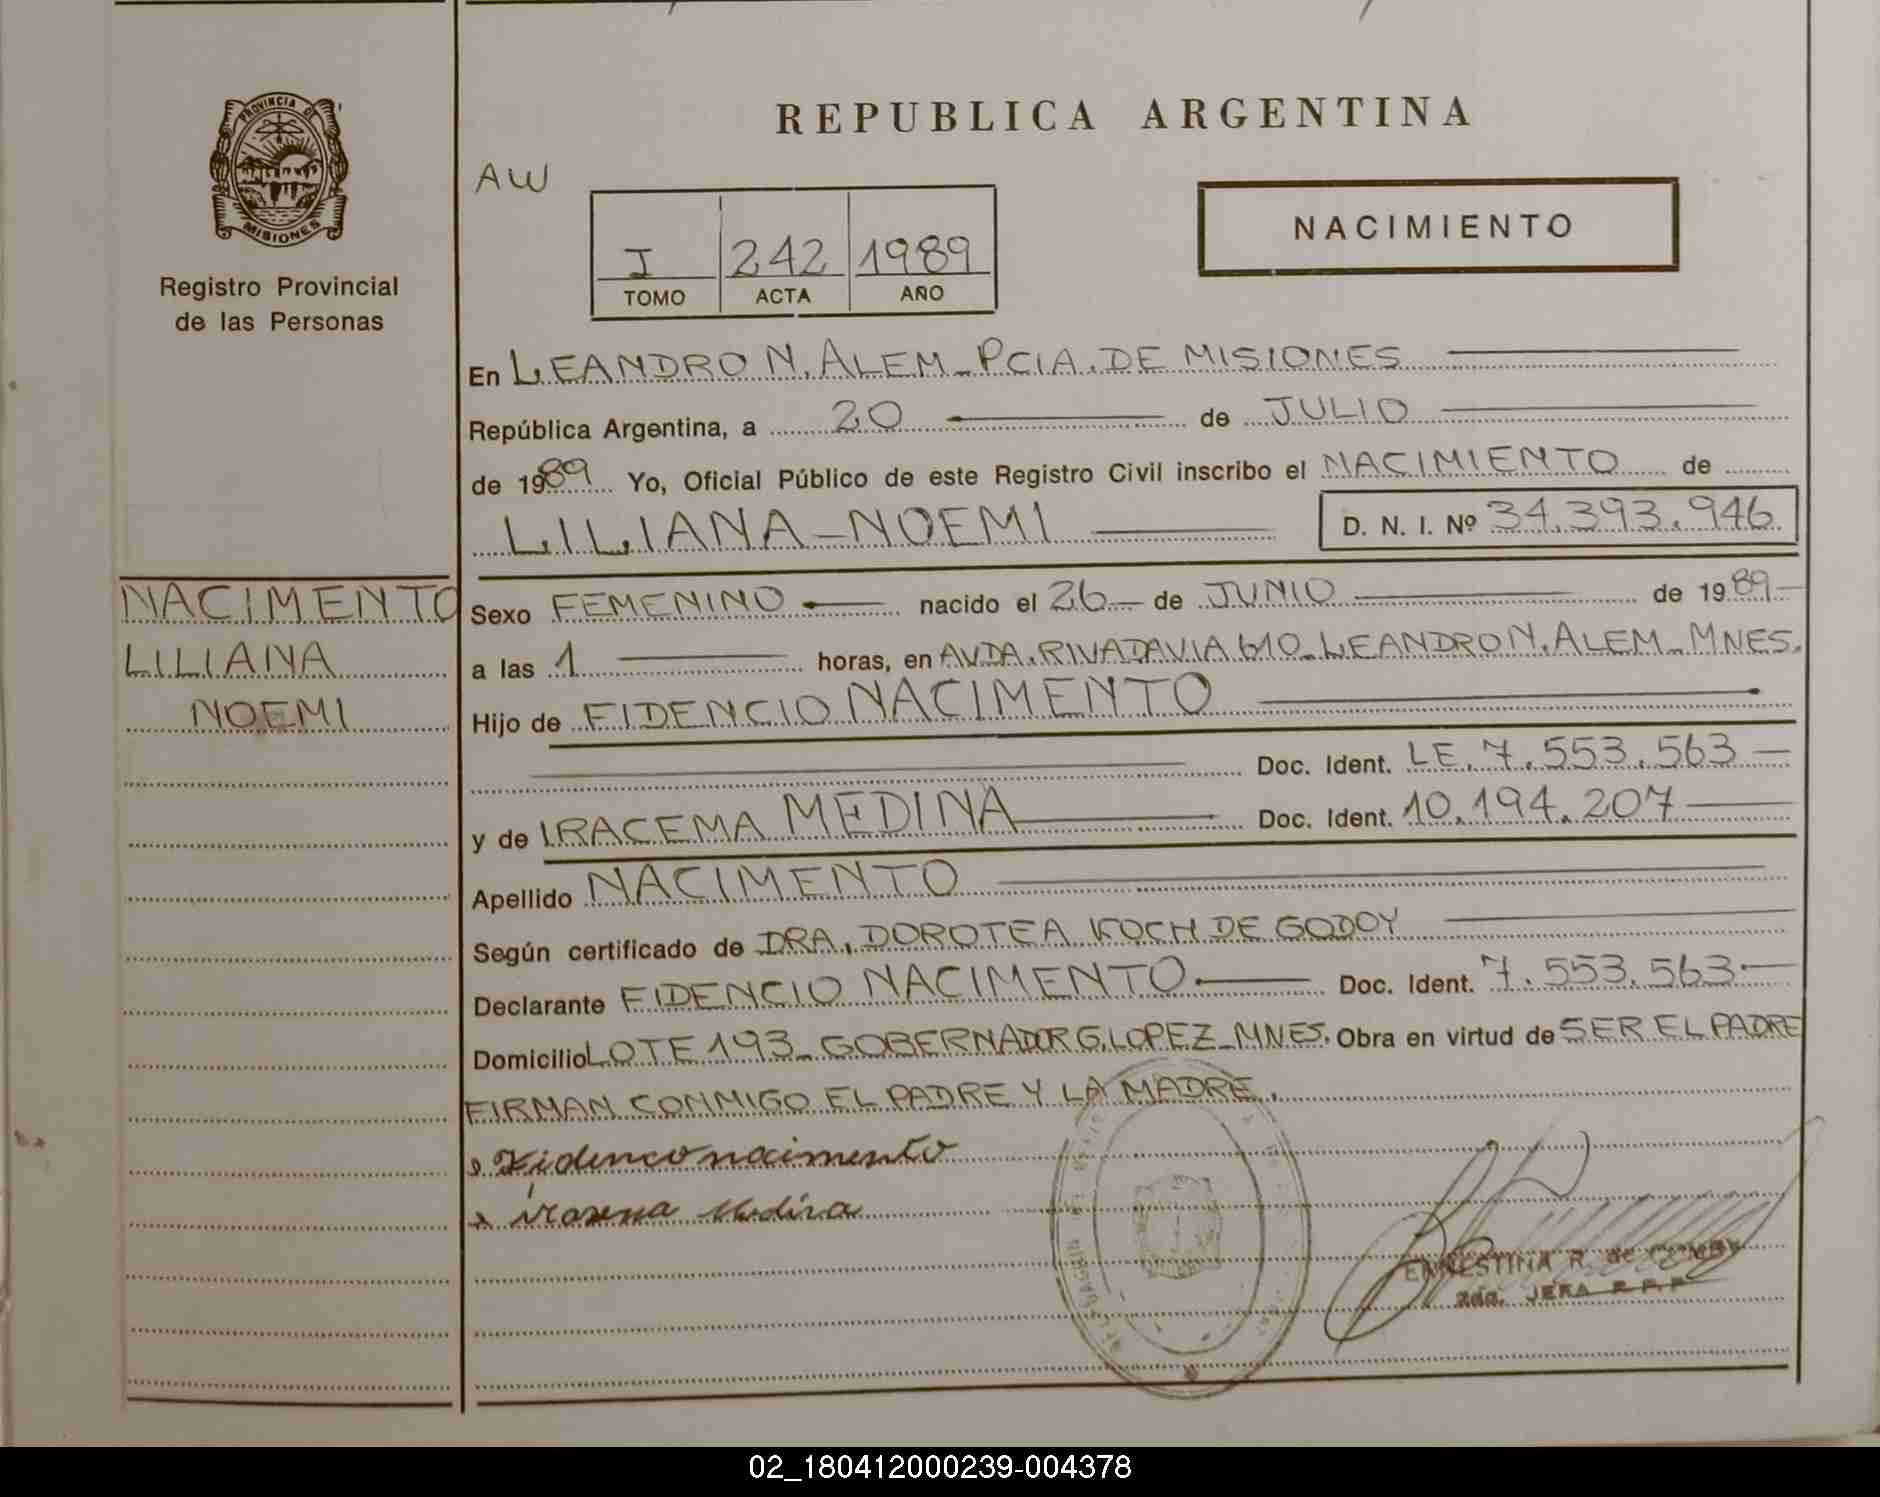 PROVINCIA DE
MISIONES
Registro Provincial
de las Personas
REPUBLICA ARGENTINA
AW
I 242 1989
TOMO ACTA AÑO
NACIMIENTO
En LEANDRO N. ALEM - PCIA. DE MISIONES
República Argentina, a 20 de JULIO
de 1989 Yo, Oficial Público de este Registro Civil inscribo el NACIMIENTO de
LILIANA-NOEMI
D. N. I. Nº 34.393.946
NACIMENTO
LILIANA
NOEMI
Sexo FEMENINO nacido el 26 de JUNIO de 1989
a las 1 horas, en AVDA. RIVADAVIA 610 - LEANDRO N. ALEM - MNES.
Hijo de FIDENCIO NACIMENTO
Doc. Ident. LE. 7.553.563
y de IRACEMA MEDINA Doc. Ident. 10.194.207
Apellido NACIMENTO
Según certificado de DRA. DOROTEA KOCH DE GODOY
Declarante FIDENCIO NACIMENTO Doc. Ident. 7.553.563
Domicilio LOTE 193 - GOBERNADOR G. LOPEZ - MNES. Obra en virtud de SER EL PADRE
FIRMAN CONMIGO EL PADRE Y LA MADRE.
Fidenco nacimento
ERNESTINA R. de
2da. JEFA R.P.P
02_180412000239-004378